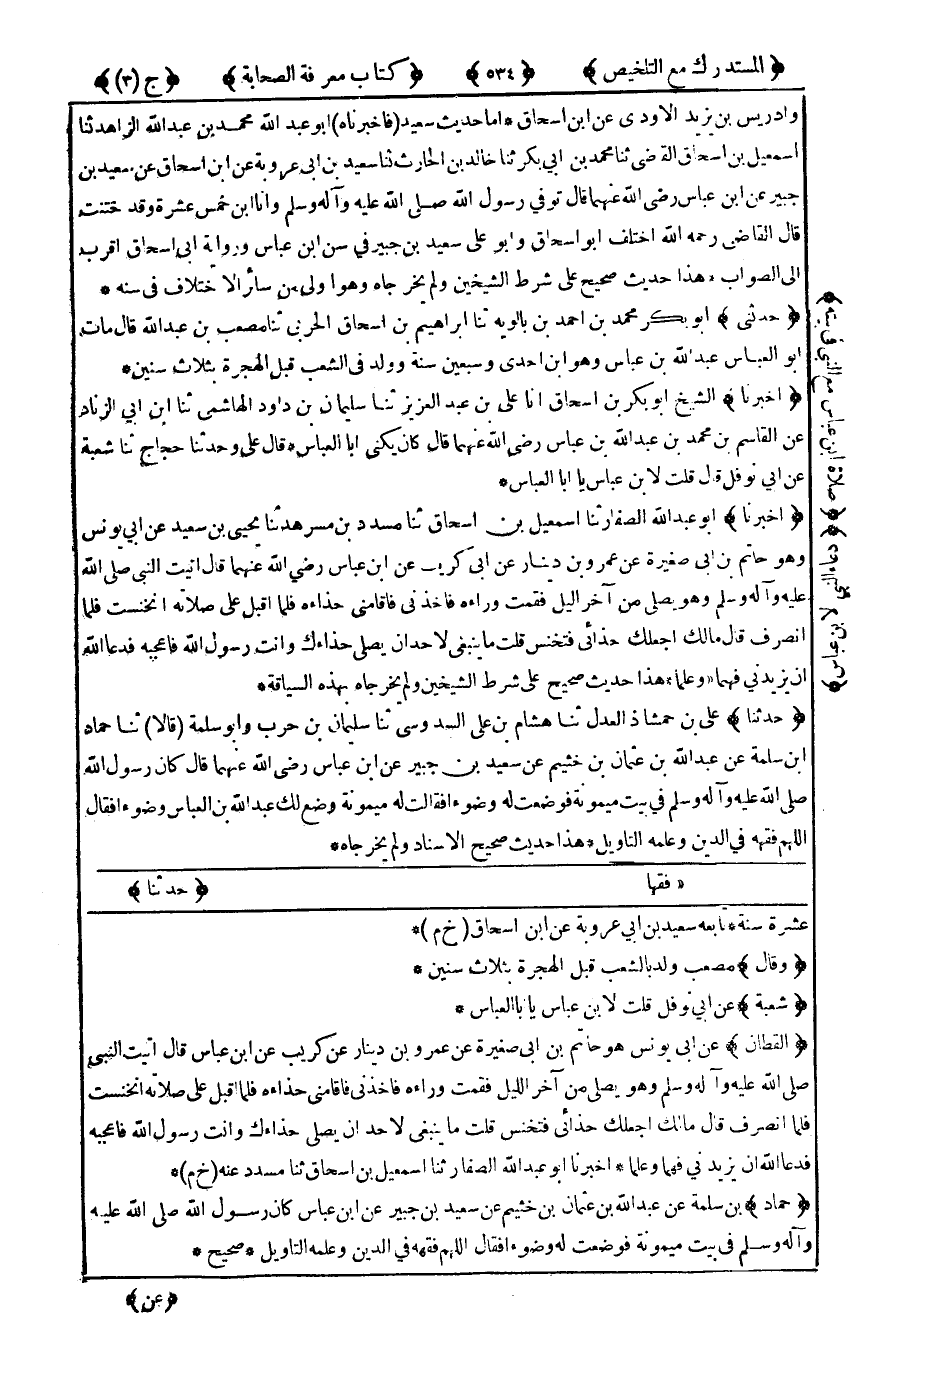 ﴿ المستدرك مع التلخيص ﴾ ﴿ ٥٣٤ ﴾ ﴿ كتاب معرفة الصحابة ﴾ ﴿ ج (٣) ﴾
وادريس بن يزيد الاودى عن ابن اسحاق * اما حديث سعيد (فاخبرناه) ابو عبد الله محمد بن عبدالله الزاهد ثنا
اسمعيل بن اسحاق القاضى ثنا محمد بن ابي بكر ثنا خالد بن الحارث ثنا سعيد بن ابى عروبة عن ابن اسحاق عن سعيد بن
جبير عن ابن عباس رضى الله عنهما قال توفي رسول الله صلى الله عليه وآله وسلم وانا ابن خمس عشرة وقد ختنت
قال القاضى رحمه الله اختلف ابو اسحاق وابو على سعيد بن جبير في سن ابن عباس ورواية ابى اسحاق اقرب
الى الصواب * هذا حديث صحيح على شرط الشيخين ولم يخرجاه وهو اولى من سائر الاختلاف فى سنه *
﴿ حدثنى ﴾ ابو بكر محمد بن احمد بن بالويه ثنا ابراهيم بن اسحاق الحربى ثنا مصعب بن عبدالله قال مات
ابو العباس عبدالله بن عباس وهو ابن احدى وسبعين سنة وولد فى الشعب قبل الهجرة بثلاث سنين *
﴿ اخبرنا ﴾ الشيخ ابو بكر بن اسحاق انا على بن عبد العزيز ثنا سليمان بن داود الهاشمى ثنا ابن ابي الزناد
عن القاسم بن محمد بن عبدالله بن عباس رضى الله عنهما قال كان يكنى ابا العباس * قال على وحدثنا حجاج ثنا شعبة
عن ابي نوفل قال قلت لابن عباس يا ابا العباس *
﴿ اخبرنا ﴾ ابو عبدالله الصفار ثنا اسمعيل بن اسحاق ثنا مسدد بن مسرهد ثنا يحيى بن سعيد عن ابي يونس
وهو حاتم بن ابى صغيرة عن عمرو بن دينار عن ابى كريب عن ابن عباس رضي الله عنهما قال اتيت النبي صلى الله
عليه وآله وسلم وهو يصلى من آخر اليل فقمت وراءه فاخذنى فاقامنى حذاءه فلما اقبل على صلاته انخنست فلما
انصرف قال مالك اجعلك حذائى فتخنس قلت ما ينبغى لاحد ان يصلى حذاءك وانت رسول الله فاعجبه فدعا الله
ان يزيدني فهما «وعلما * هذا حديث صحيح على شرط الشيخين ولم يخرجاه بهذه السياقة *
﴿ حدثنا ﴾ على بن حمشاذ العدل ثنا هشام بن على السدوسى ثنا سليمان بن حرب وابو سلمة (قالا) ثنا حماد
ابن سلمة عن عبدالله بن عثمان بن خثيم عن سعيد بن جبير عن ابن عباس رضى الله عنهما قال كان رسول الله
صلى الله عليه وآله وسلم في بيت ميمونة فوضعت له وضوءا فقالت له ميمونة وضع لك عبدالله بن العباس وضوءا فقال
اللهم فقهه في الدين وعلمه التاويل * هذا حديث صحيح الاسناد ولم يخرجاه *
« فقها ﴿ حدثنا ﴾
عشرة سنة * تابعه سعيد بن ابي عروبة عن ابن اسحاق (خ م) *
﴿ وقال ﴾ مصعب ولد بالشعب قبل الهجرة بثلاث سنين *
﴿ شعبة ﴾ عن ابي نوفل قلت لابن عباس يا ابا العباس *
﴿ القطان ﴾ عن ابى يونس هو حاتم بن ابى صغيرة عن عمرو بن دينار عن كريب عن ابن عباس قال اتيت النبي
صلى الله عليه وآله وسلم وهو يصلى من آخر الليل فقمت وراءه فاخذنى فاقامنى حذاءه فلما اقبل على صلاته انخنست
فلما انصرف قال مالك اجعلك حذائى فتخنس قلت ما ينبغى لاحد ان يصلى حذاءك وانت رسول الله فاعجبه
فدعا الله ان يزيدني فهما وعلما * اخبرنا ابو عبدالله الصفار ثنا اسمعيل بن اسحاق ثنا مسدد عنه (خ م) *
﴿ حماد ﴾ بن سلمة عن عبدالله بن عثمان بن خثيم عن سعيد بن جبير عن ابن عباس كان رسول الله صلى الله عليه
وآله وسلم فى بيت ميمونة فوضعت له وضوءا فقال اللهم فقهه في الدين وعلمه التاويل * صحيح *
﴿ عن ﴾
﴿ صلاة ابن عباس مع النبي في بيته ﴾